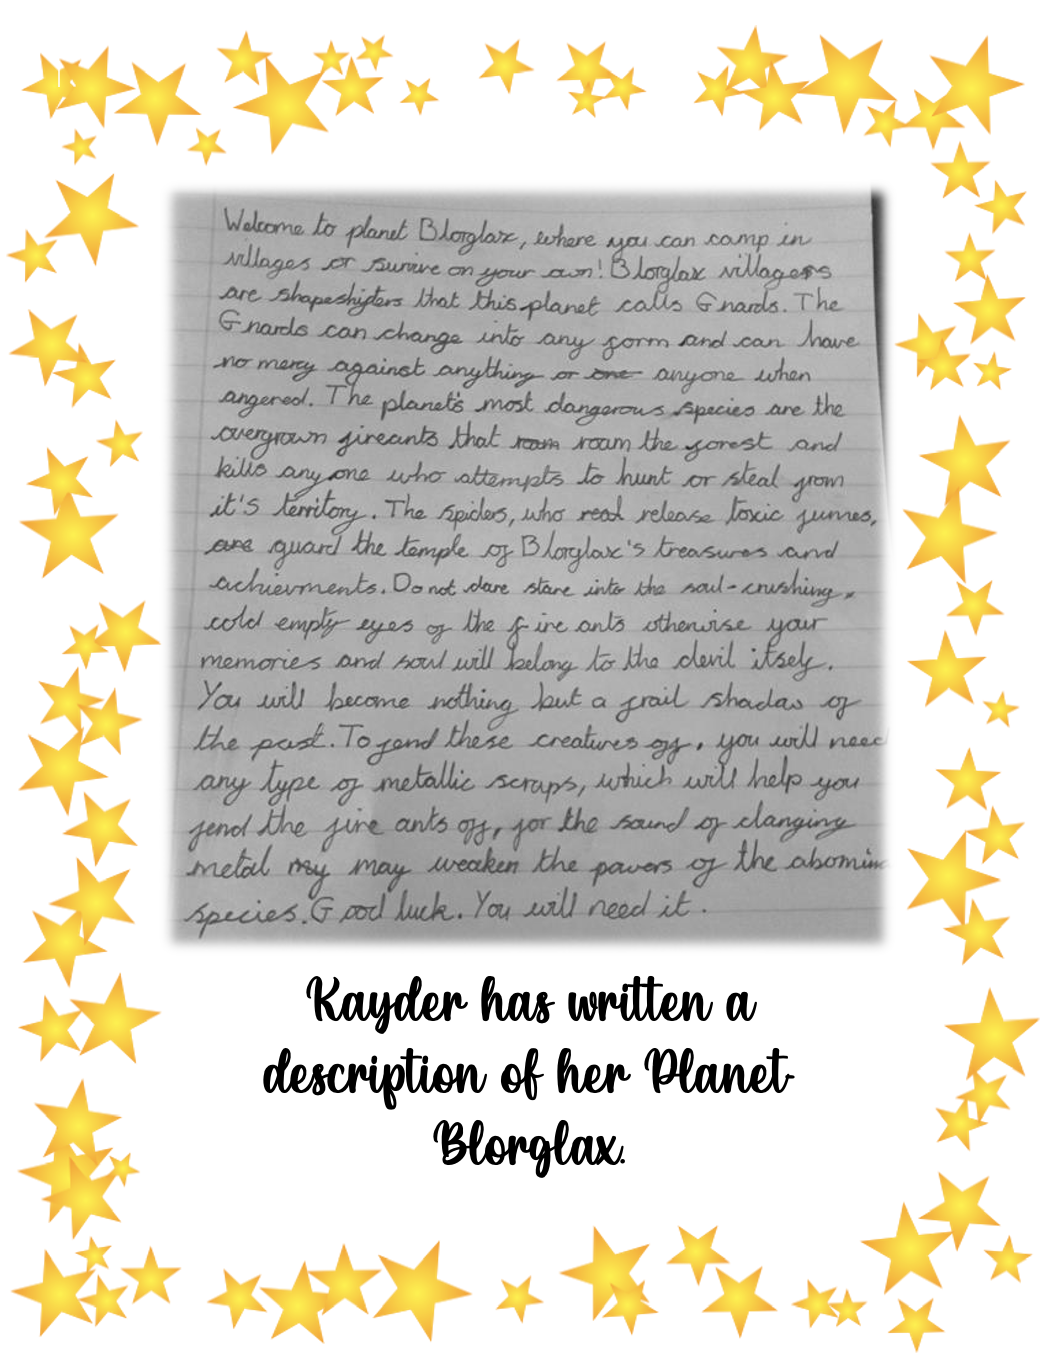 Welcome to planet Blorglax, where you can camp in
villages or survive on your own! Blorglax villagers
are shapeshifters that this planet calls Gnards. The
Gnards can change into any form and can have
no mercy against anything or one anyone when
angered. The planet's most dangerous species are the
overgrown fireants that roam roam the forest and
kills anyone who attempts to hunt or steal from
it's territory. The spiders, who real release toxic fumes,
are guard the temple of Blorglax's treasures and
achievments. Do not dare stare into the soul-crushing,
cold empty eyes of the fire ants otherwise your
memories and soul will belong to the devil itself.
You will become nothing but a frail shadow of
the past. To fend these creatures off, you will need
any type of metallic scraps, which will help you
fend the fire ants off, for the sound of clanging
metal my may weaken the powers of the abomin
species. Good luck. You will need it.
Kayder has written a
description of her Planet-
Blorglax.